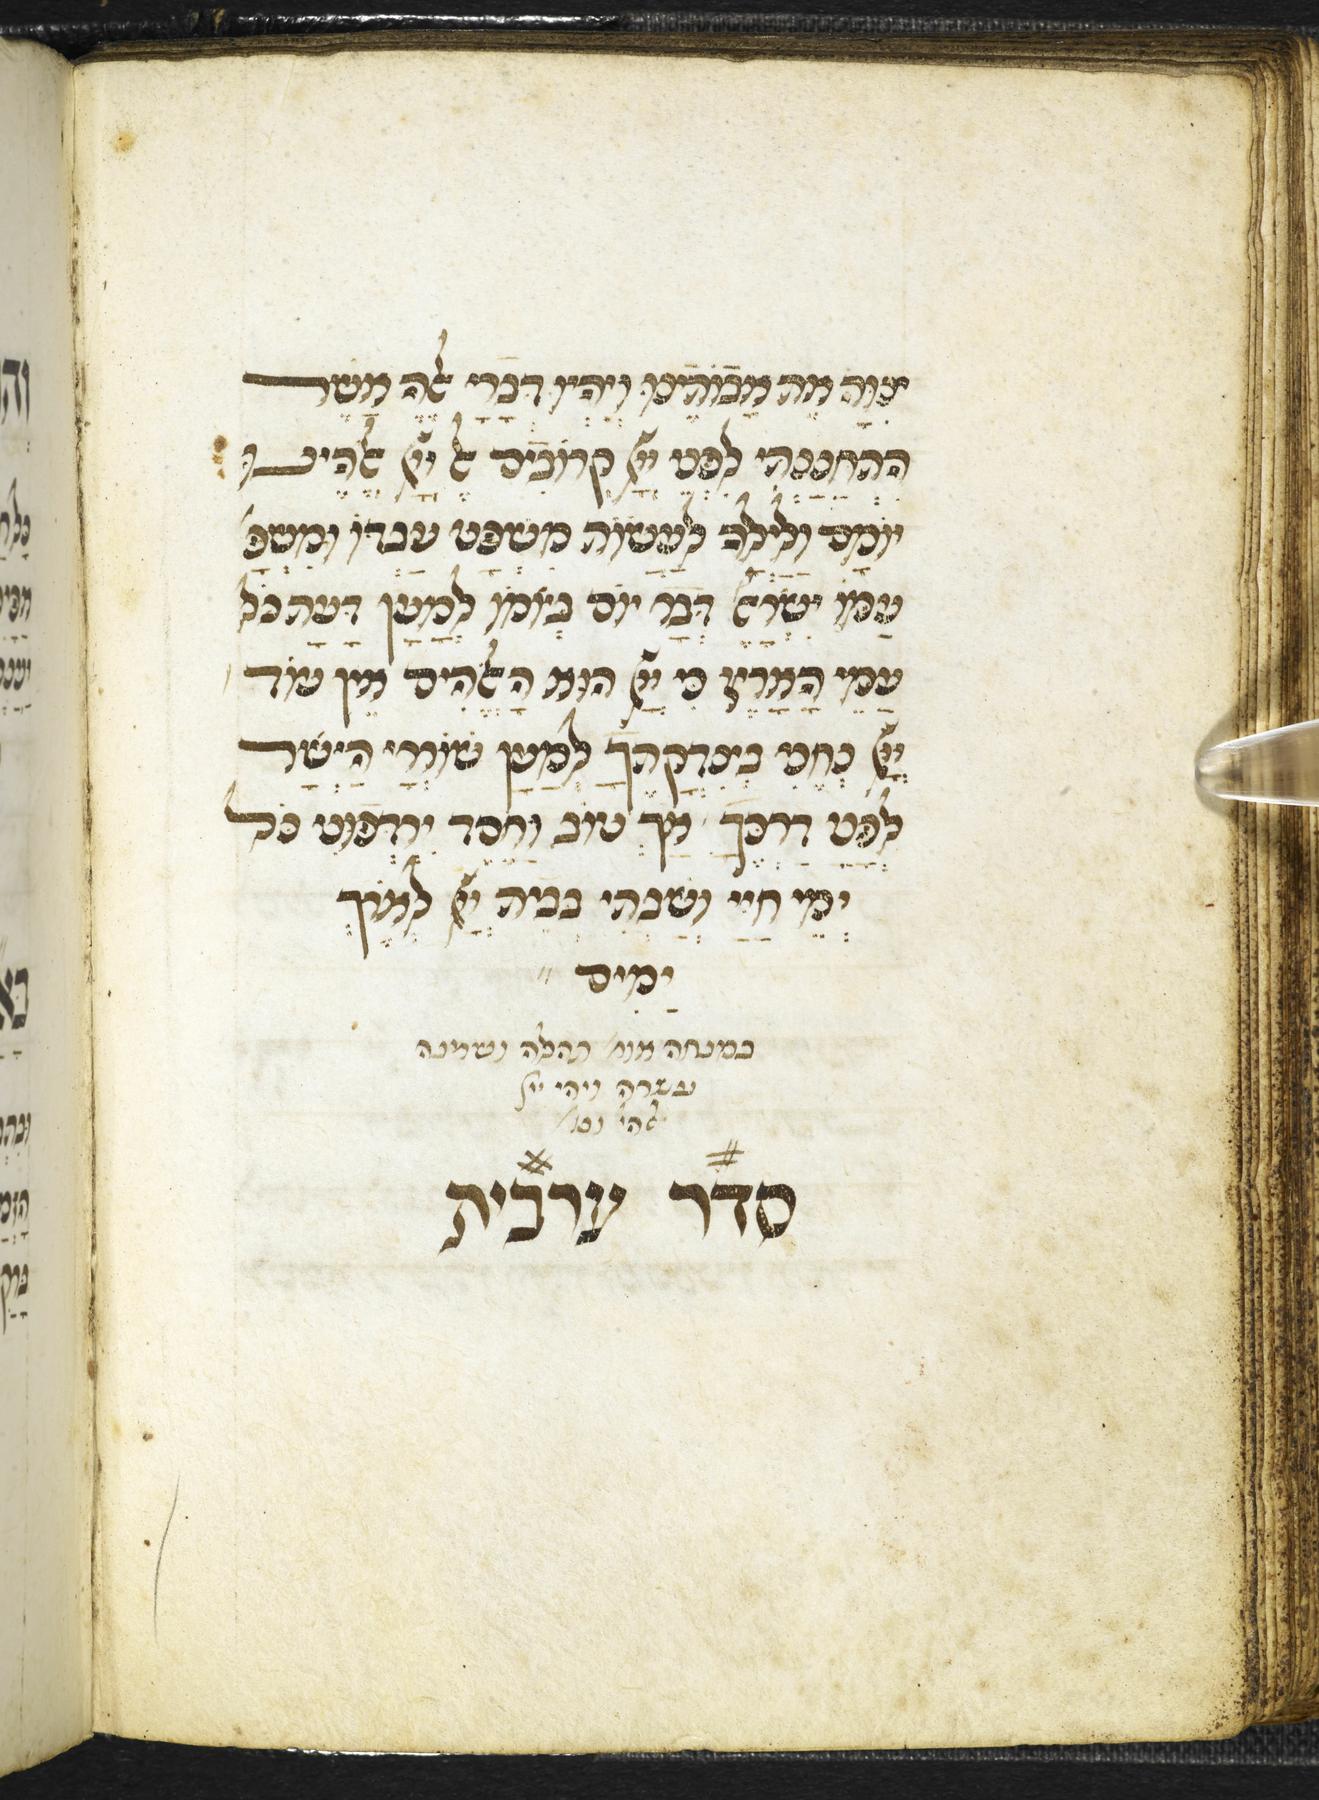 צִוָּה אֶת אֲבוֹתֵינוּ וְיִהְיוּ דְבָרַי אֵלֶּה אֲשֶׁר
הִתְחַנַּנְתִּי לִפְנֵי יְיָ קְרוֹבִים אֶל יְיָ אֱלֹהֵינוּ
יוֹמָם וָלַיְלָה לַעֲשׂוֹת מִשְׁפַּט עַבְדּוֹ וּמִשְׁפַּ'
עַמּוֹ יִשְׂרָאֵל דְּבַר יוֹם בְּיוֹמוֹ לְמַעַן דַּעַת כֹּל
עַמֵּי הָאָרֶץ כִּי יְיָ הוּא הָאֱלֹהִים אֵין עוֹד
יְיָ נְחֵנִי בְצִדְקָתֶךָ לְמַעַן שׁוֹרְרָי הַיְשַׁר
לְפָנַי דַּרְכֶּךָ אַךְ טוֹב וָחֶסֶד יִרְדְּפוּנִי כֹּל
יְמֵי חַיַּי וְשַׁבְתִּי בְּבֵית יְיָ לְאוֹרֶךְ
יָמִים
במנחה אומ' תהלה ושמונה
עשרה ויהי יי'
אלהי' וכו'
סדר ערבית